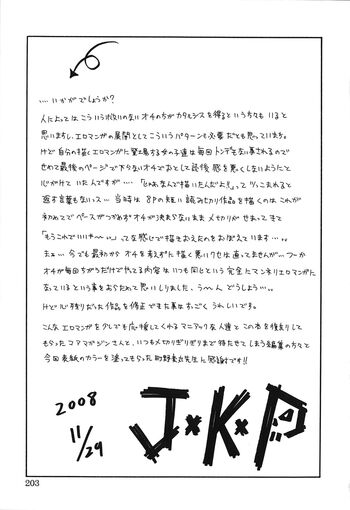 .... いかがでしょうか?
人によってはこういう救いのないオチの方がカタルシスを得るという方々もいると
思いますし、エロマンガの展開としてこういうパターンも必要だとも思っています。
けど自分の描くエロマンガに登場する女の子達は毎回トンデモない事されるので
せめて最後のページで下らないオチでおとして読後感を悪くしないようにと
心がけていたんですが....「じゃあなんで描いたんだよ!」ってツッこまれると
返す言葉もないっス... 当時は8Pの短い読み切り作品を描くのはこれが
初めてでペースがつかめずオチが決まらないままメ切りがせまってきて
「もうこれでいいやーい」って感じで描きおえたのをおぼえています....
まぁ... 今でも最初からオチを考えずに描く悪いクセは直ってませんが... つーか
オチが毎回ちがうだけでヤってる内容はいつも同じという完全にマンネリエロマンガに
なっている事をあらためて思いしりました、う〜んどうしよう...
けど心残りだった作品を修正できた事はすっごくうれしいです。
こんなエロマンガを少しでも応援してくれるマニアックな人達とこの本を復刻して
もらったコアマガジンさんと、いつもメ切りぎりぎりまで待たせてしまう編集の方々と
今回表紙のカラーを塗ってもらった町野変丸先生に感謝です!!
2008
11/29
J*K*P
203